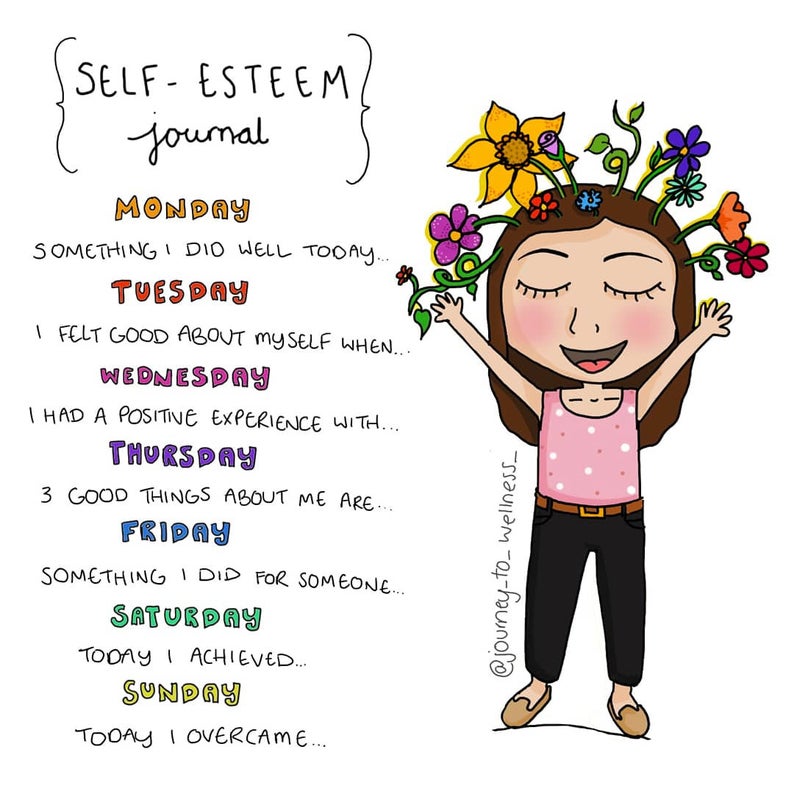 SELF - ESTEEM
journal
MONDAY
SOMETHING I DID WELL TODAY...
TUESDAY
I FELT GOOD ABOUT MYSELF WHEN...
WEDNESDAY
I HAD A POSITIVE EXPERIENCE WITH...
THURSDAY
3 GOOD THINGS ABOUT ME ARE...
FRIDAY
SOMETHING I DID FOR SOMEONE...
SATURDAY
TODAY I ACHIEVED...
SUNDAY
TODAY I OVERCAME...
@journey_to_wellness_